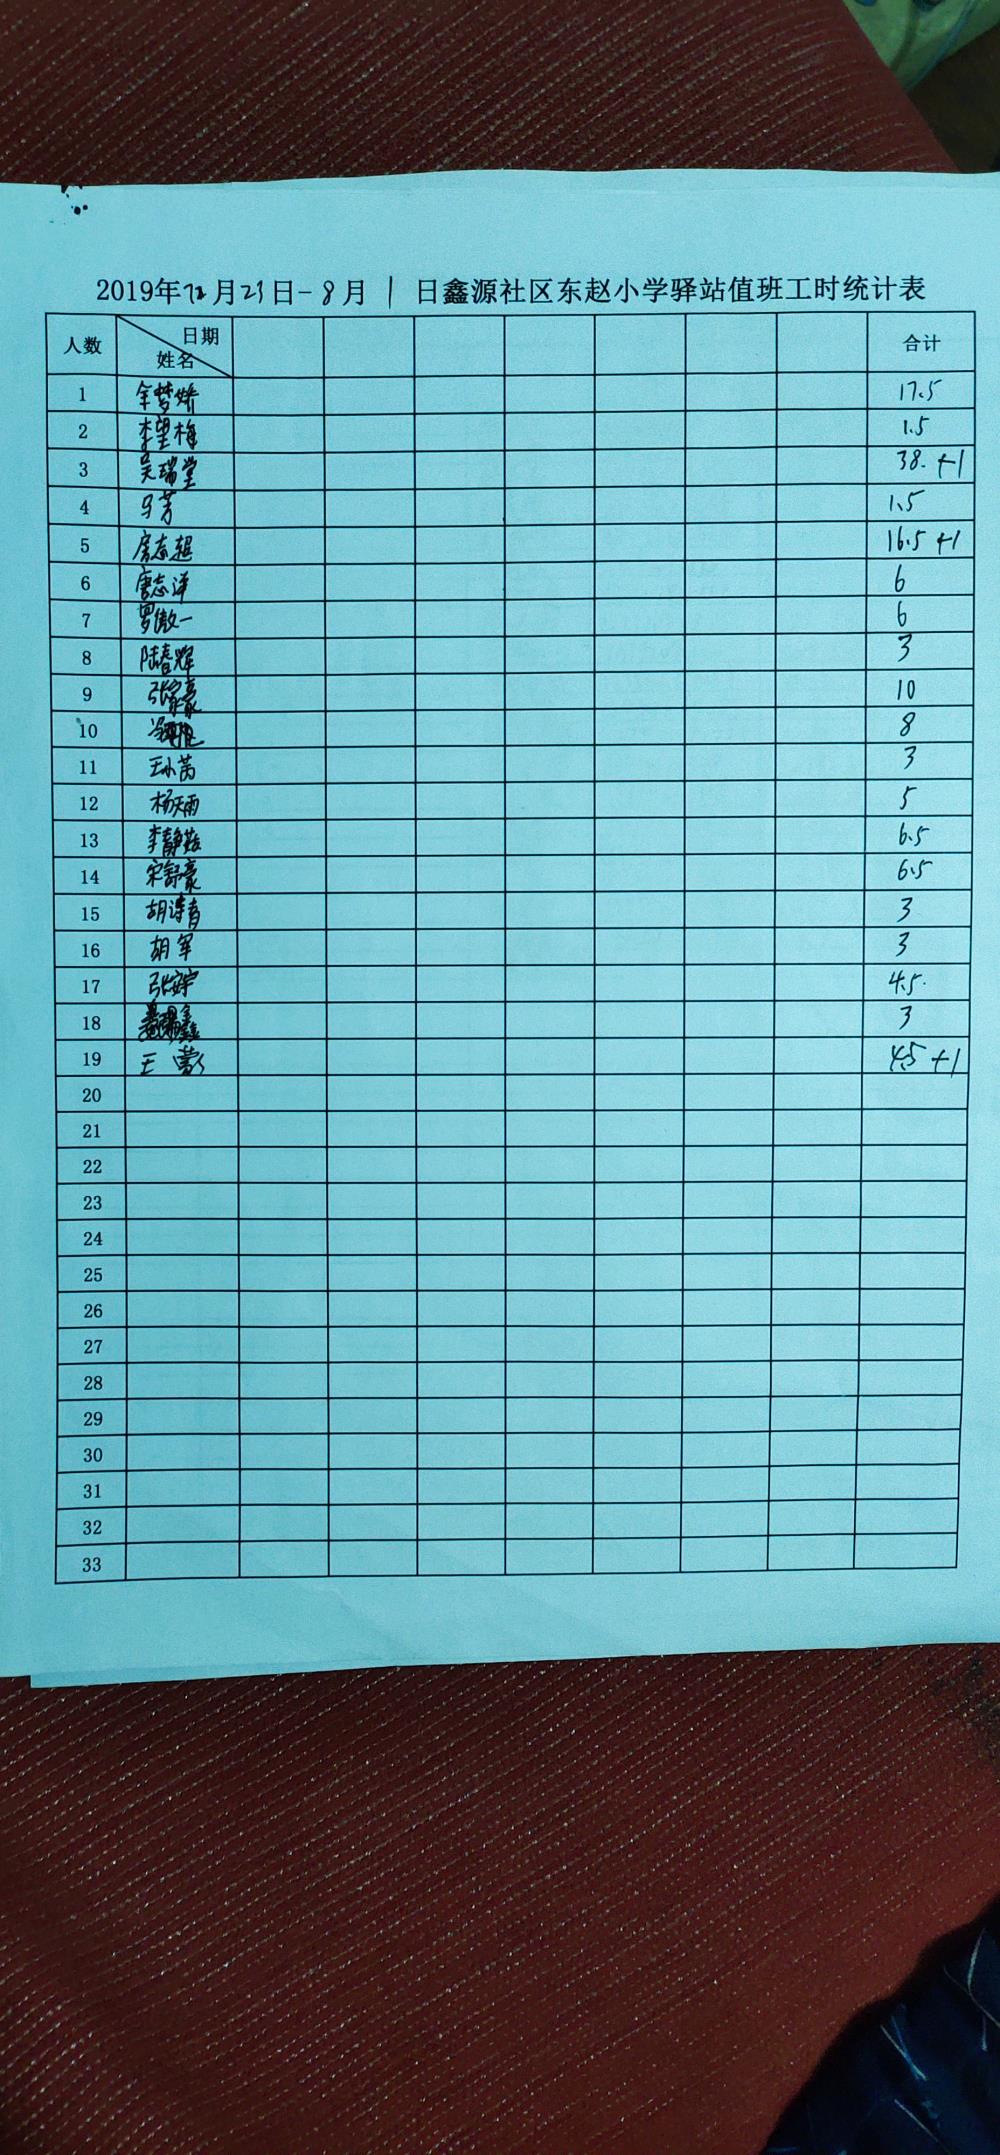 2019年7月23日-8月1日鑫源社区东赵小学驿站值班工时统计表
人数 日期 姓名 合计
1 余梦娇 17.5
2 李望梅 1.5
3 吴瑞堂 38. +1
4 马芳 1.5
5 房志超 16.5 +1
6 唐志泽 6
7 罗傲一 6
8 陆春辉 3
9 张家豪 10
10 8
11 王小芮 3
12 杨天雨 5
13 李静茹 6.5
14 宋舒豪 6.5
15 胡诗青 3
16 胡军 3
17 张安宇 4.5
18 3
19 王 4.5 +1
20
21
22
23
24
25
26
27
28
29
30
31
32
33